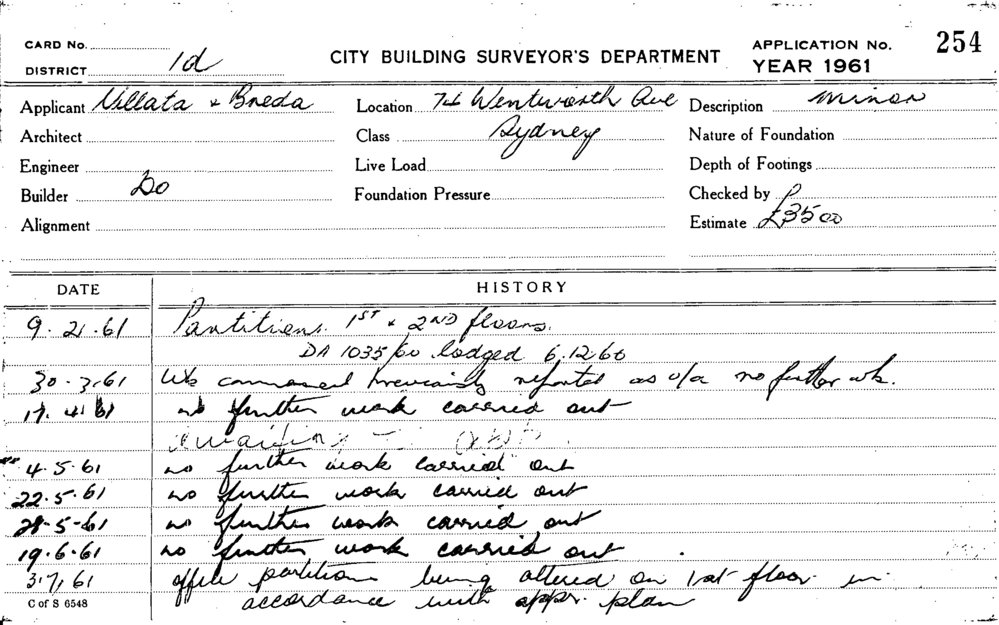 CARD No.
DISTRICT 1d
CITY BUILDING SURVEYOR'S DEPARTMENT
APPLICATION No. 254
YEAR 1961
Applicant Villata & Breda
Location 74 Wentworth Ave
Description Minor
Architect
Class Sydney
Nature of Foundation
Engineer
Live Load
Depth of Footings
Builder Do
Foundation Pressure
Checked by
Alignment
Estimate £3500
DATE HISTORY
9.2.61 Partitions. 1ST & 2ND floors.
DA 1035/60 lodged 6.12.60
30.3.61 Wk commenced previously reported as u/a no further wk.
17.4.61 no further work carried out
Awaiting
4.5.61 no further work carried out
22.5.61 no further work carried out
28-5-61 no further work carried out
19.6.61 no further work carried out
3.7.61 office partition being altered on 1st floor in
accordance with appr. plan
C of S 6548